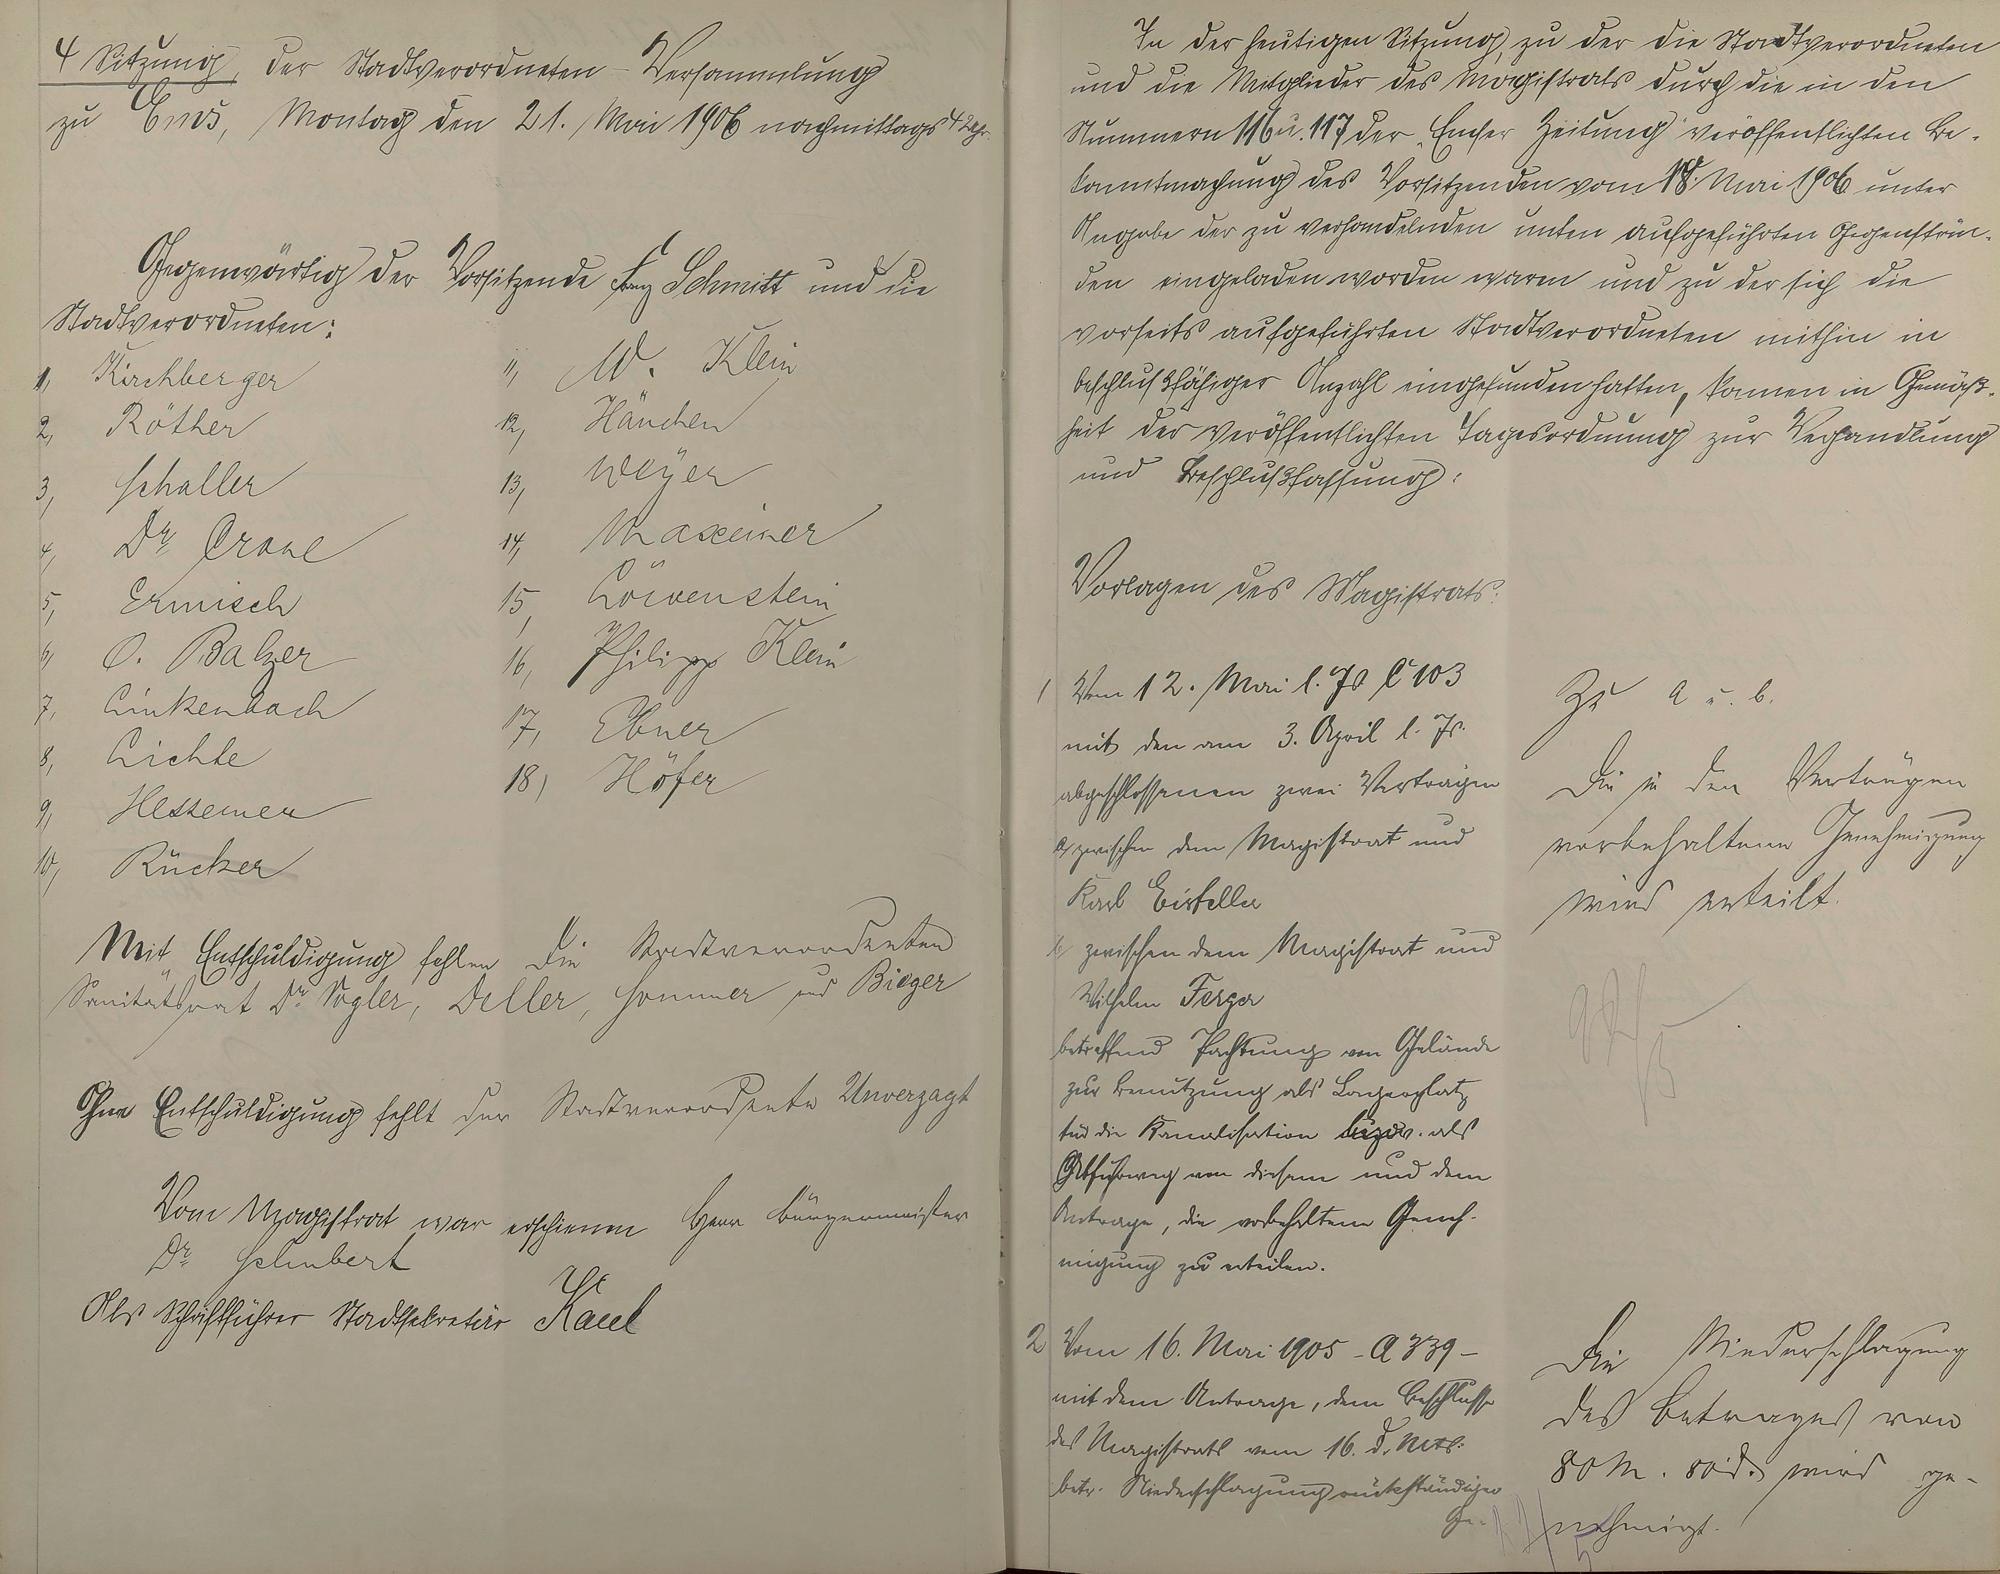 4 Sitzung, der Stadtverordneten-Versammlung
zu Ems, Montag den 21. Mai 1906 nachmittags 4 Uhr.
Gegenwärtig der Vorsitzende Franz Schmitt und die
Stadtverordneten:
1, Kirchberger
2, Röther
3, Schaller
4, Dr. Crone
5, Ermisch
6, O. Balzer
7, Linkenbach
8, Lichte
9, Hessemer
10, Rücker
11, W. Klein
12, Hänchen
13, Weyer
14, Maxeiner
15, Löwenstein
16, Philipp Klein
17, Ebner
18, Höfer
Mit Entschuldigung fehlen die Stadtverordneten
Sanitätsrat Dr. Vogler, Deller, Sommer und Bieger
Ohne Entschuldigung fehlt der Stadtverordnete Unverzagt
Vom Magistrat war erschienen Herr Bürgermeister
Dr. Schubert
Als Schriftführer Stadtsekretär Kaul
In der heutigen Sitzung, zu der die Stadtverordneten
und die Mitglieder des Magistrats durch die in den
Nummern 116 u. 117 der "Emser Zeitung" veröffentlichten Be-
kanntmachung des Vorsitzenden vom 18. Mai 1906 unter
Angabe der zu verhandelnden unten aufgeführten Gegenstän-
den eingeladen worden waren und zu der sich die
vorseits aufgeführten Stadtverordneten mithin in
beschlußfähiger Anzahl eingefunden hatten, kamen in Gemäß-
heit der veröffentlichten Tagesordnung zur Verhandlung
und Beschlußfassung:
Vorlagen des Magistrats:
1 Vom 12. Mai l. Js C 103
mit den am 3. April l. Js.
abgeschlossenen zwei Verträgen
a, zwischen dem Magistrat und
Karl Eisfeller
b, zwischen dem Magistrat und
Wilhelm Ferger
betreffend Pachtung von Gelände
zur Benutzung als Lagerplatz
für die Kanalisation bezw. als
Abfuhrweg von diesem und dem
Antrage, die vorbehaltene Geneh-
migung zu erteilen.
Zu a u. b.
Die in den Verträgen
vorbehaltene Genehmigung
wird erteilt.
2 Vom 16. Mai 1905 - A 339 -
mit dem Antrage, dem Beschlusse
des Magistrats vom 16. d. Mts.
betr. Niederschlagung rückständiger
Ge-
Die Niederschlagung
des Betrages von
80 M. 80 d. wird ge-
nehmigt.